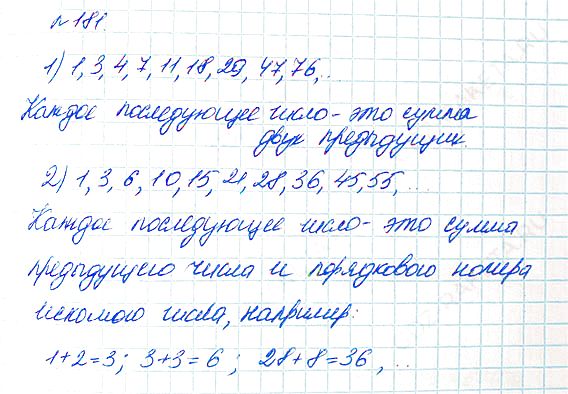 № 181.
1) 1, 3, 4, 7, 11, 18, 29, 47, 76, ...
Каждое последующее число - это сумма
двух предыдущих.
2) 1, 3, 6, 10, 15, 21, 28, 36, 45, 55, ...
Каждое последующее число - это сумма
предыдущего числа и порядкового номера
искомого числа, например:
1+2=3; 3+3=6; 28+8=36, ...